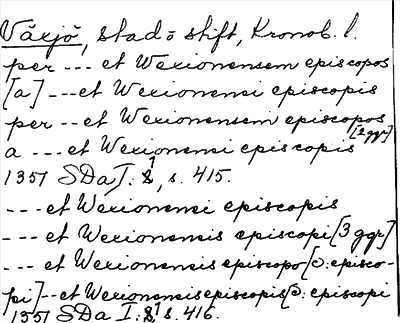 Växjö, stad o stift, Kronob. l.
per --- et Wexionensem episcopos
[a] --- et Wexionensi episcopis
per -- et Wexionensem episcopos
a --- et Wexionensi episcopis [2 ggr]
1351 SDa I: 1, s. 415.
--- et Wexionensi episcopis
--- et Wexionensis episcopi [3 ggr]
--- et Wexionensis episcopo [ɔ: episco-
pi] -- et Wexionensis episcopis [ɔ: episcopi
1351 SDa I: 1, s. 416.